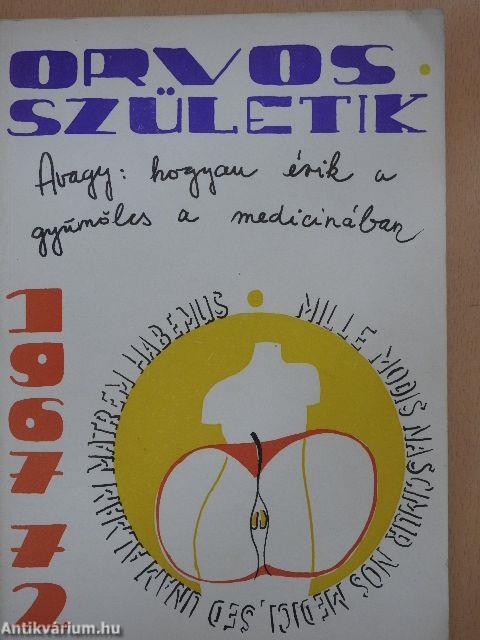 ORVOS
SZÜLETIK
Avagy: hogyan érik a
gyümölcs a medicinában
1967
72
MILLE MODIS NASCIMUR NOS MEDICI, SED UNAM ALMAM MATREM HABEMUS
Antikvárium.hu